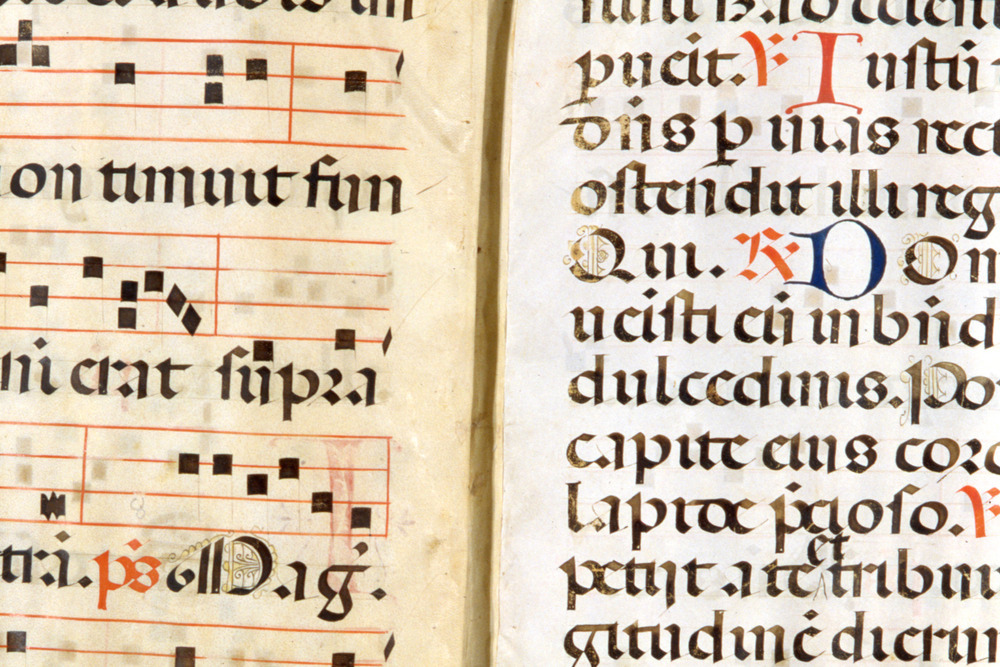 on timuit fun
ni erat supra
tra. ps Mag.
pucit. V Iusti
dns p uias rect
ostendit illi reg
Qui. R D On
ueisti eu in bnd
dulcedinis. Po
capite eius coro
lapide pcioso. V
et
petijt a te tribui
gitudine dieru